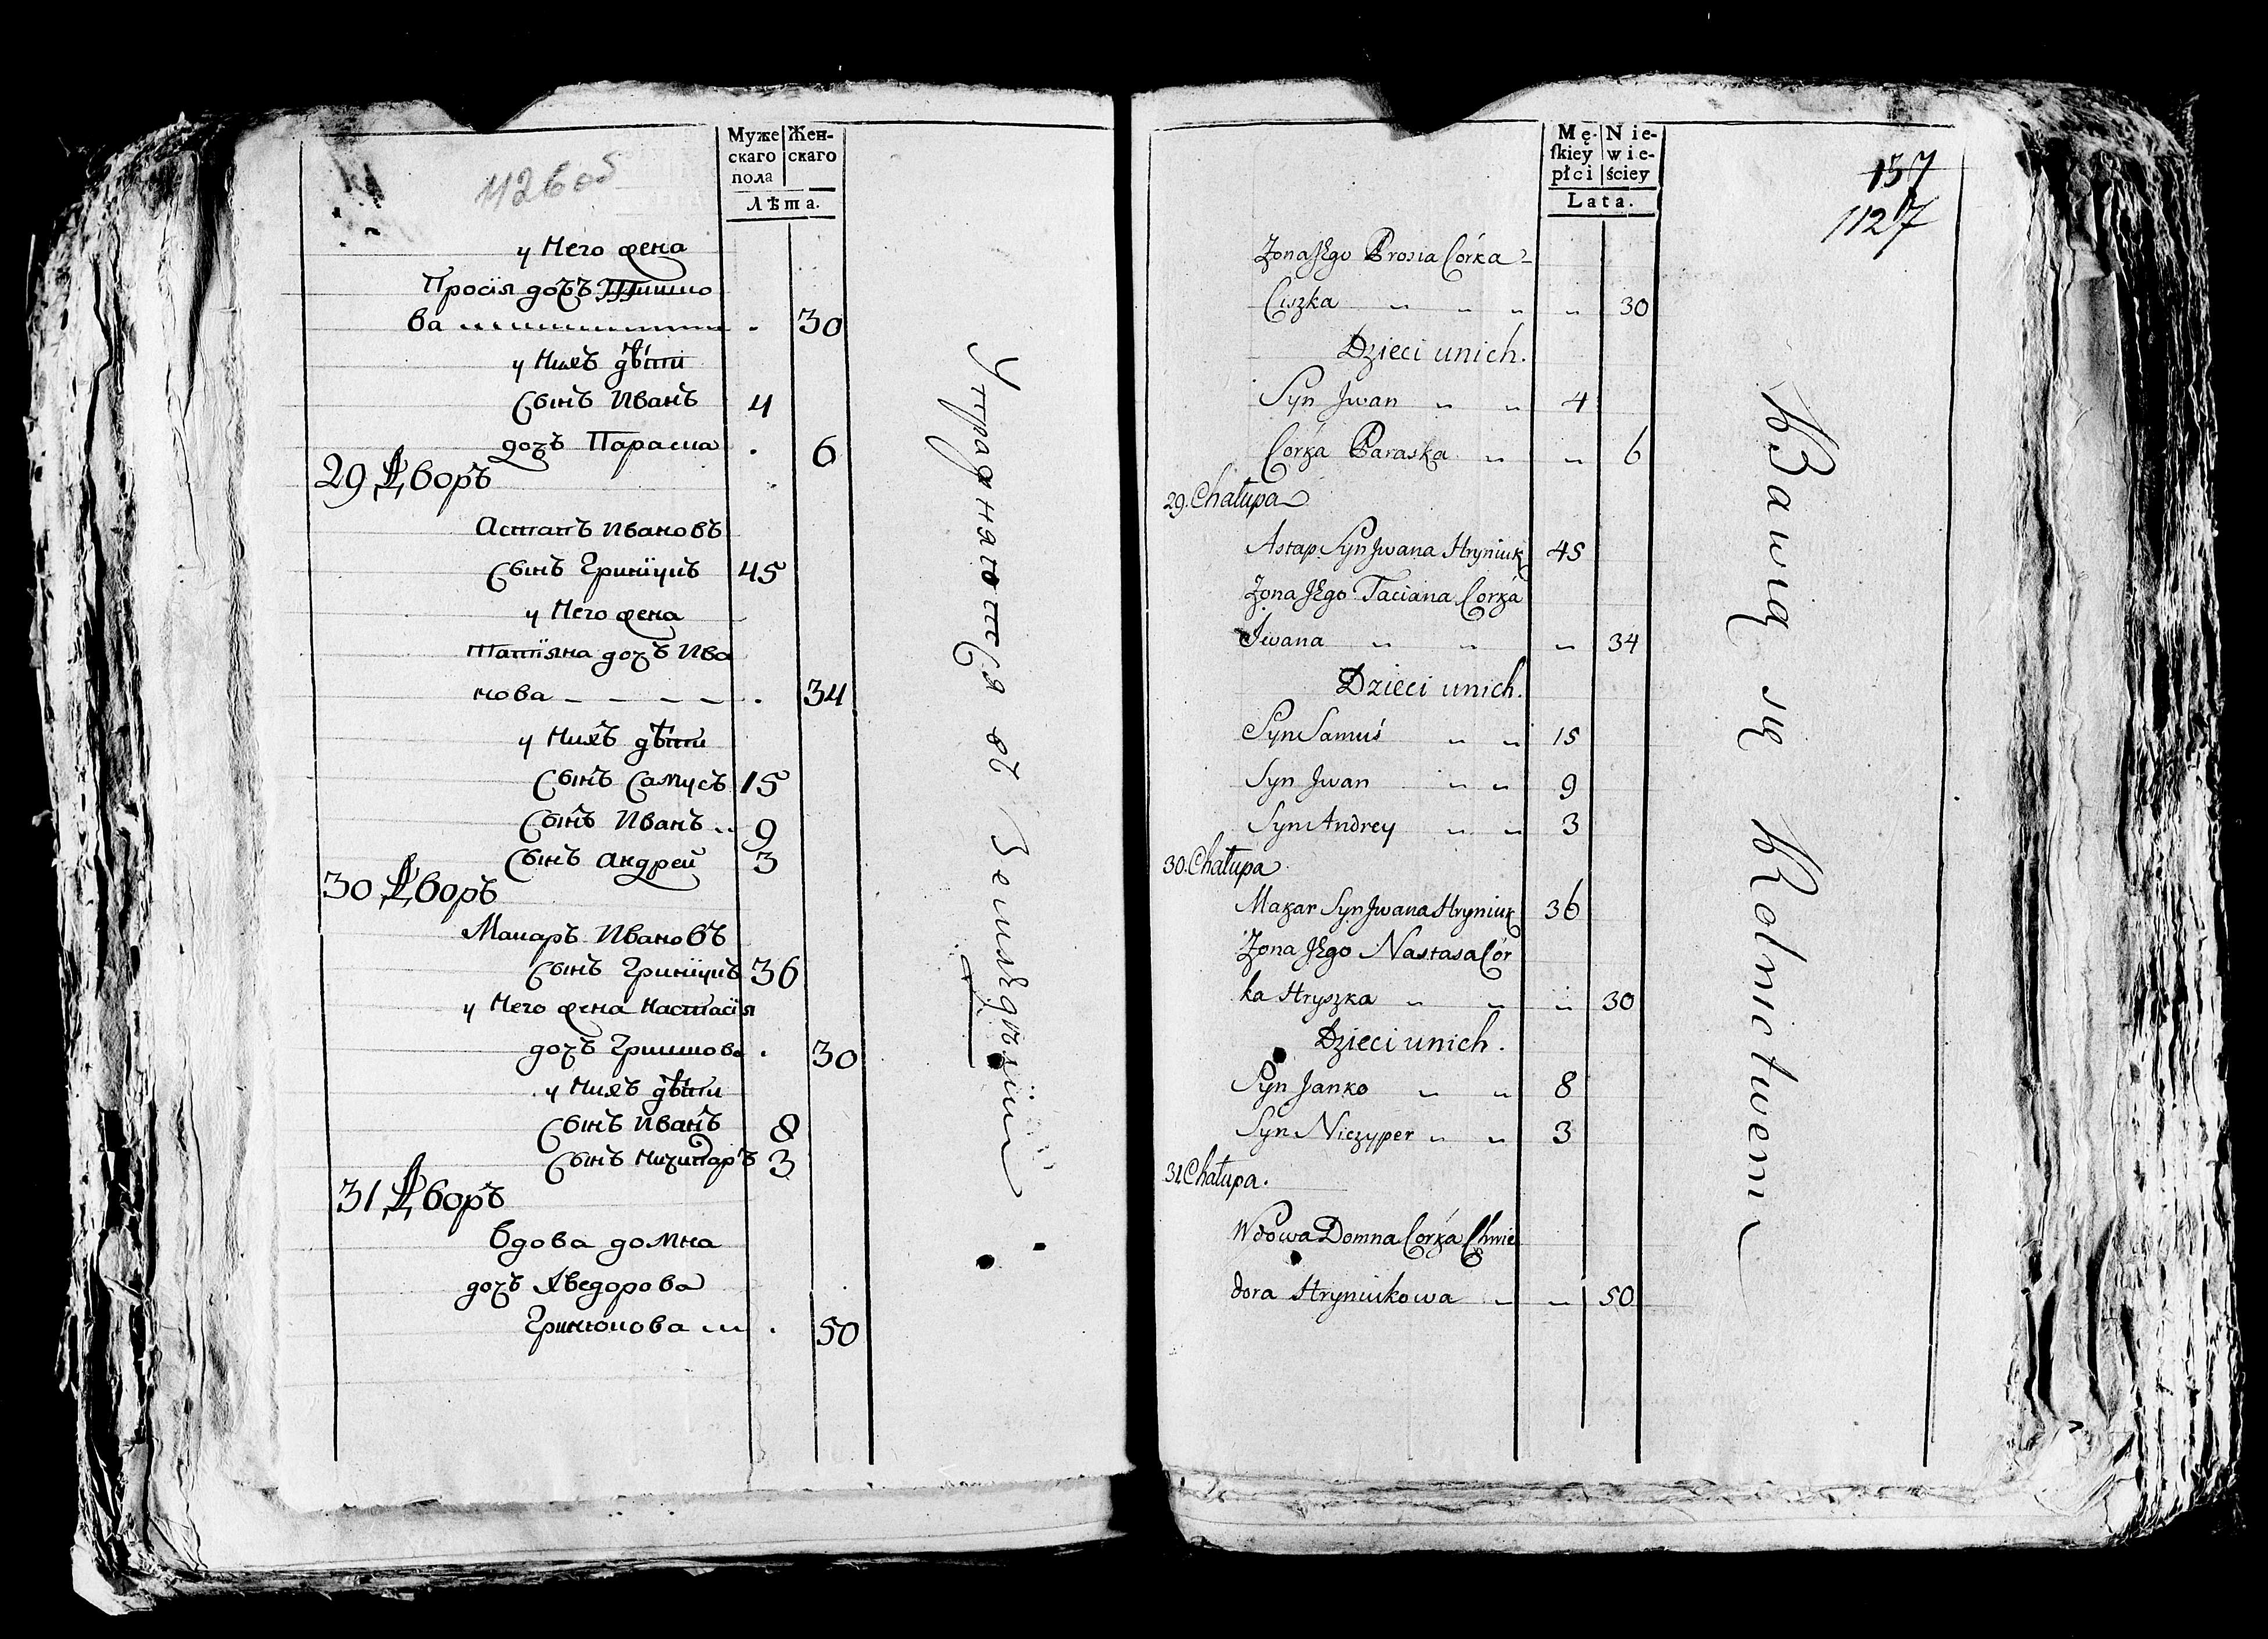 1126 об
Муже Жен-
скаго скаго
пола
Лѣта.
у Него жена
Просія дочъ Тишко
ва . 30
у Нихъ дѣти
Сынъ Иванъ 4
дочъ Параска . 6
29 Дворъ
Астапъ Ивановъ
Сынъ Гринюкъ 45
у Него жена
Татіяна дочъ Ива
нова - - - - . 34
у Нихъ дѣти
Сынъ Самусъ 15
Сынъ Иванъ 9
Сынъ Андрей 3
30 Дворъ
Макаръ Ивановъ
Сынъ Гринюкъ 36
у Него жена Настасія
дочъ Гришкова . 30
у Нихъ дѣти
Сынъ Иванъ 8
Сынъ Ничипаръ 3
31 Дворъ
Вдова домна
дочъ Хведорова
Гринюкова . 50
Упражняются въ Земледѣліи
Mę- Nie-
ſkiey wie-
płci ściey
Lata.
157
1127
Zona JEgo Prosia Córka
Ciszka " " " " 30
Dzieci unich.
Syn Jwan " " 4
Corka Paraska " " 6
29. Chałupa
Astap Syn Jwana Hryniuk 45
Zona JEgo Taciana Corka
Jwana " " " 34
Dzieci unich.
Syn Samuś " " 15
Syn Jwan " " 9
Syn Andrey " " 3
30. Chałupa
Makar Syn Jwana Hryniuk 36
Zona JEgo Nastasa Cór
ka Hryszka " " " 30
Dzieci unich.
Syn Janko " " 8
Syn Niczyper " " 3
31. Chałupa.
Wdowa Domna Corka Chwie
dora Hryniukowa " " 50
Bawią się Rolnictwem